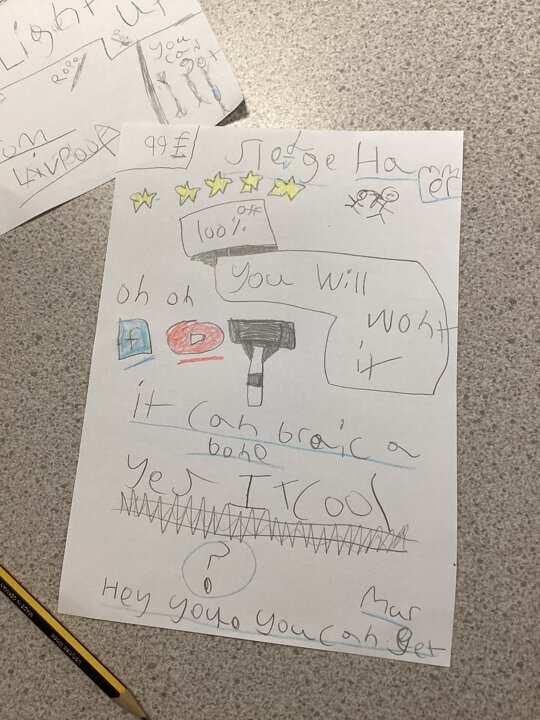 Light up
you
can
get
um
LAIVPOOF
99£
Sledge Hammer
100% off
You Will
Woht
it
oh oh
f
it can braic a
bone
Yes IT COOL
?
Mur
Hey you you can get